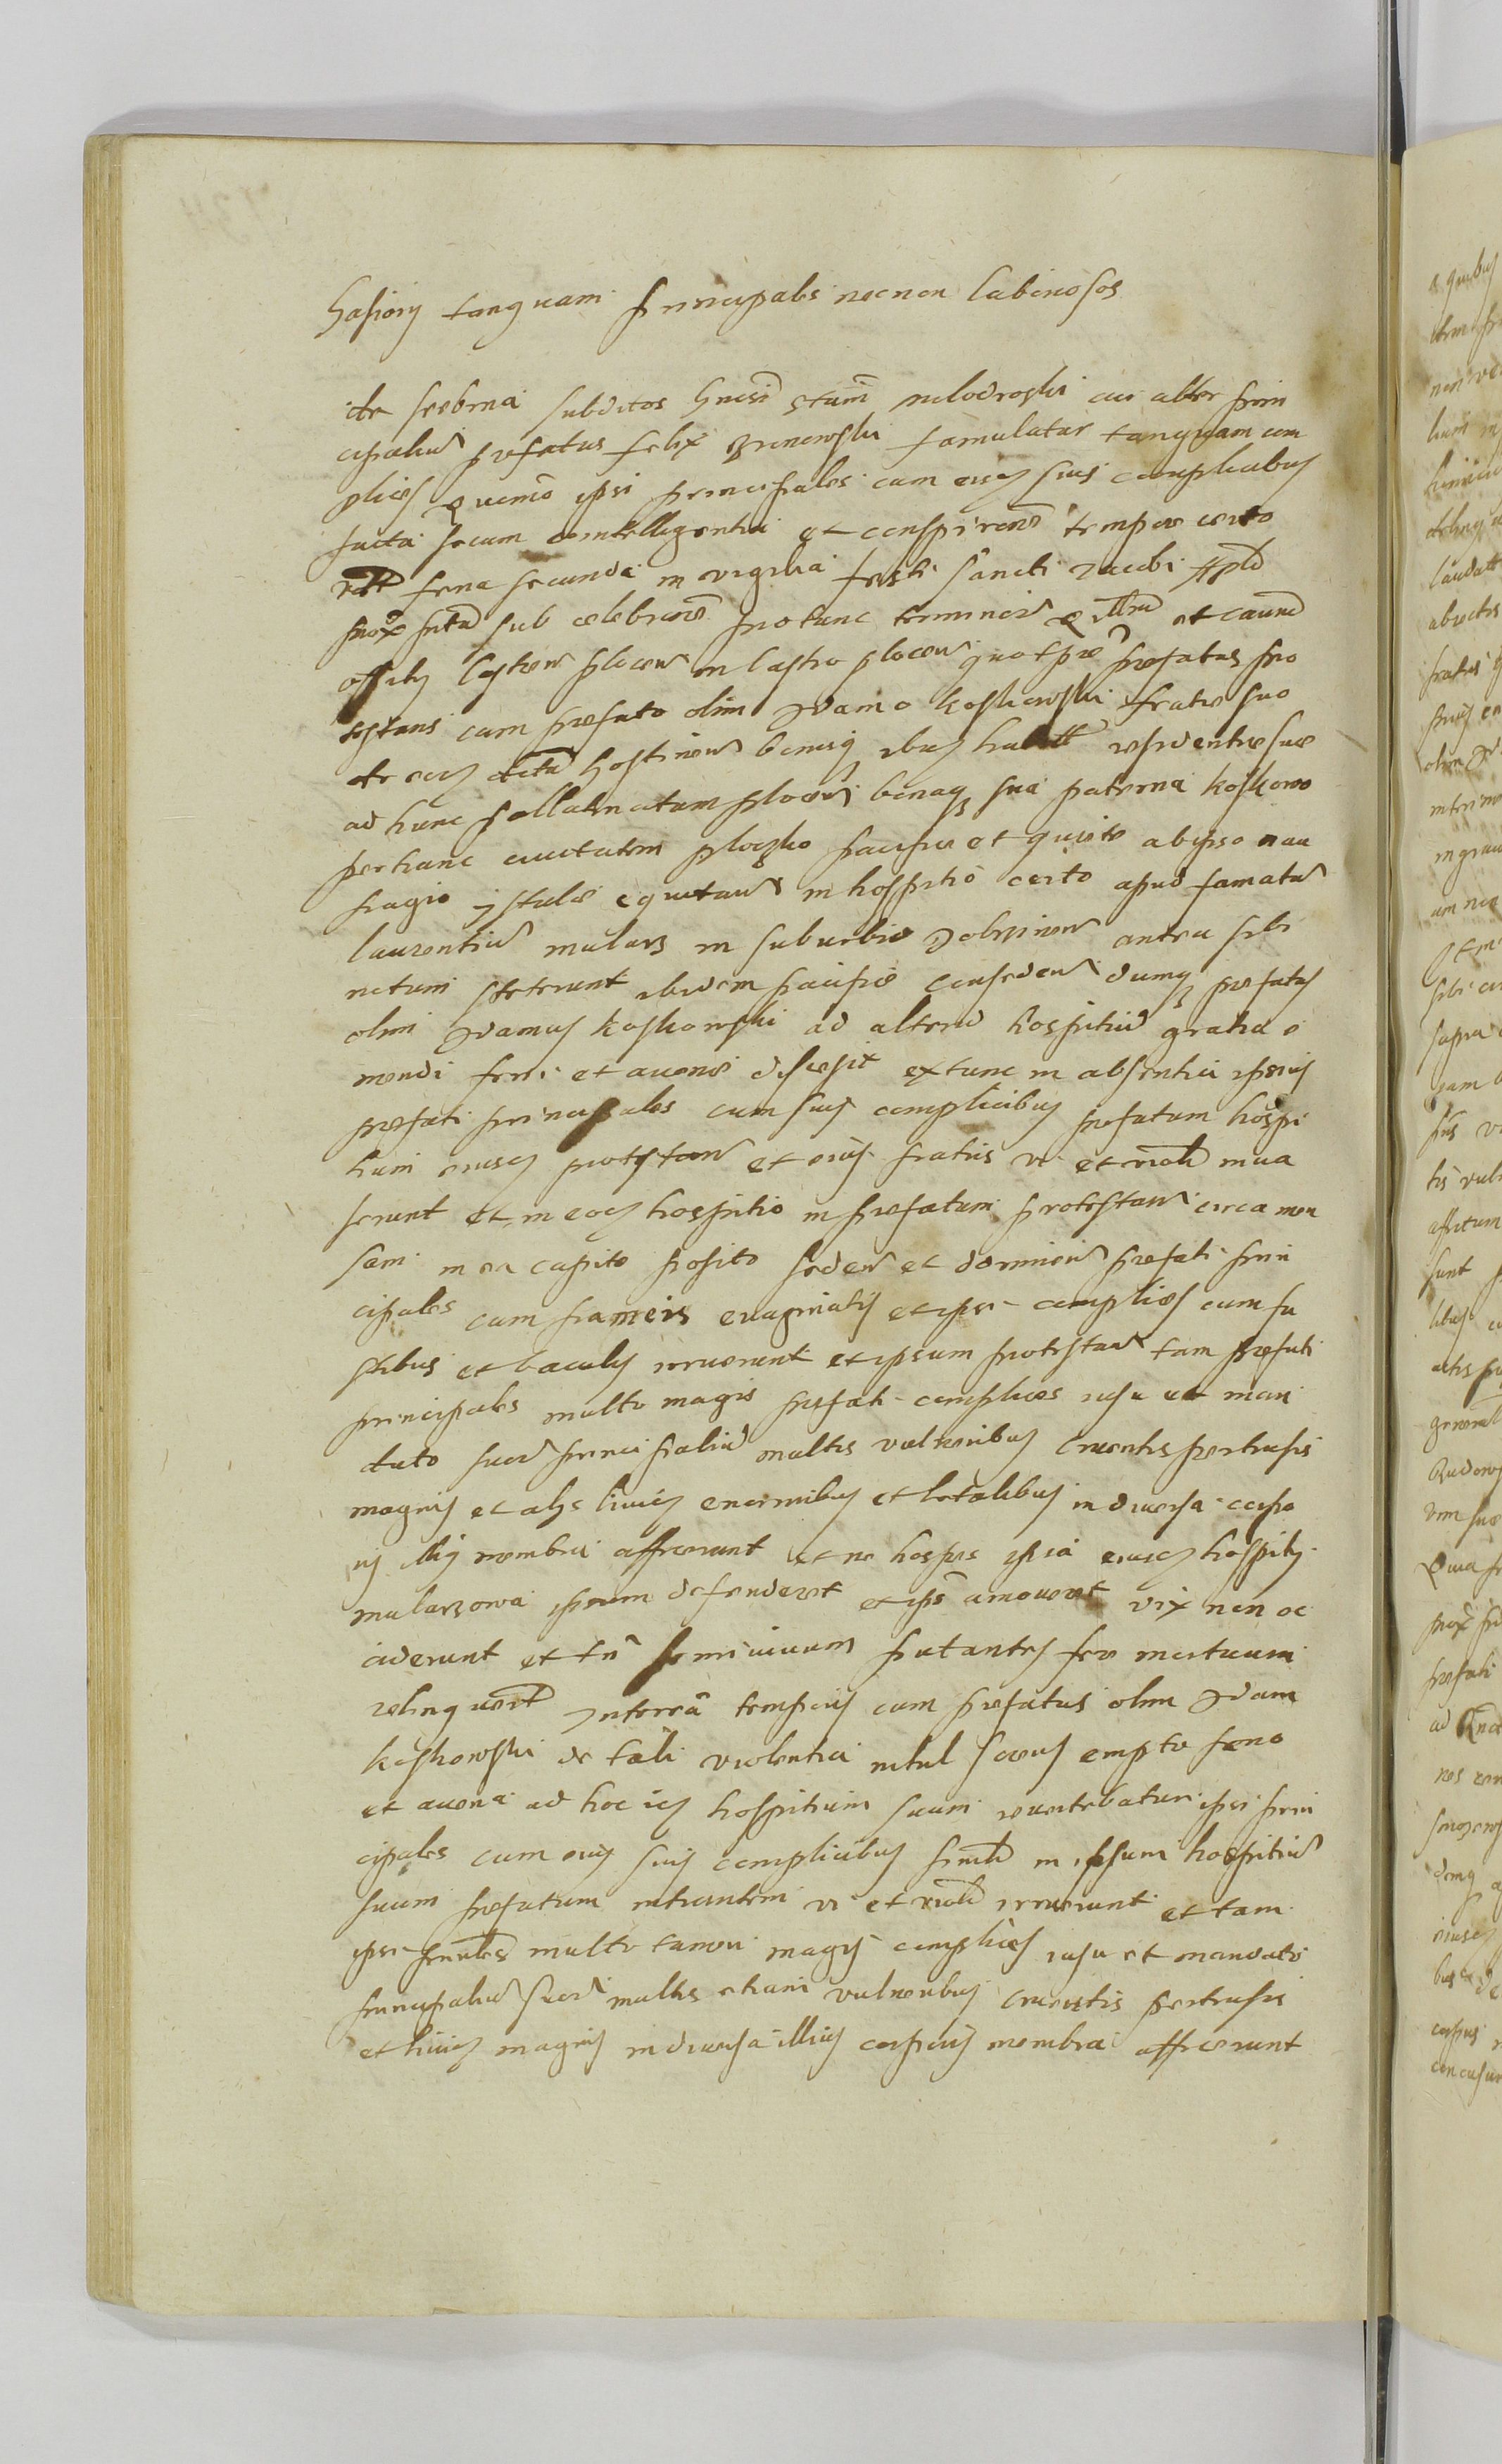 tanquam principales necnon laboriosos
de Srebrna subditos Milodroski cui alter prin
cipaliu prefatus Felix famulatur tanquam com
plices ipsi principales cum eisdem suis complicibus
facta secum cointelligentia et conspiratione tempore certo
feria secunda in vigilia festi Sancti Jacobi Appli
sub celebratione protunc terminoru et
offitij Castren Plocen in Castro Plocen prefatus pro
testans cum prefato olim Adamo Koskowski fratre suo
de bonisq residentie sue
ad hunc Pallatinatum Plocen bonaq sua paterna Koskowo
per hanc civitatem Ploczko pacifice et quiete ab ipso nau
fragio Istule equitan in hospitio certo apud famatu
Laurentiu Malarz in suburbio Dobrzinen antea sibi
notum steterunt ibidem pacifice conseden dumq prefatus
olim Adamus Koskowski ad alteru hospitiu gratia e
mendi feni et avene discessit extunc in absentia ipsius
prefati principales cum suis complicibus prefatum hospi
tium protestan et eius fratris vi et violr inva
serunt et in eodem hospitio in prefatum protestan circa men
sam in ea capite posito seden et dormien prefati prin
cipales cum frameis evaginatis et ipsi complices cum fu
stibus et baculis irruerunt et ipsum protestan tam prefati
principales multo magis prefati complices iusu et man
dato suor principaliu multis vulneribus cruentis pertusis
magnis et alys livid enormibus et letalibus in diversa corpo
ris illius membra affecerunt et ne hospes ipsa hospitij
Malarzowa ipsum defenderet et ips amoveret vix non oc
ciderunt et tn semivivum putantes fere mortuum
relinquert Interea temporis cum prefatus olim Adam
Koskowski de tali violentia nihil sciens empto feno
et avena ad hoc id hospitium suum revertebatur ipsi prin
cipales cum suis complicibus similr in ipsum hospitiu
suum prefatum intrantem vi et violr irruerunt et tam
ipsi multo tamen magis complices iusu et mandato
principaliu suor multis etiam vulneribus cruentis pertusis
et livid magnis in diversa illius corporis membra affecerunt